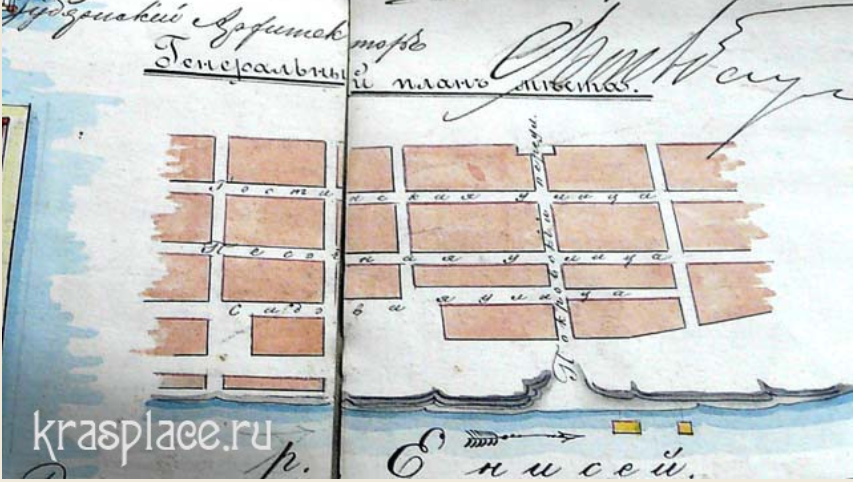 Губернский Архитекторъ
Генеральный планъ мѣста.
Гостинская улица
Песочная улица
Садовая улица
Покровскій переул.
krasplace.ru
р. Енисей.